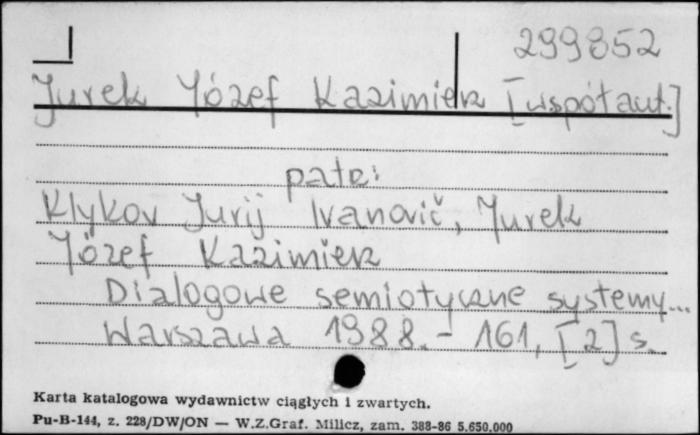 299852
Jurek Józef Kazimierz [współaut.]
patrz:
Klykov Jurij Ivanovič, Jurek
Józef Kazimierz
Dialogowe semiotyczne systemy...
Warszawa 1988. - 161, [2] s.
Karta katalogowa wydawnictw ciągłych i zwartych.
Pu-B-144, z. 228/DW/ON — W.Z.Graf. Milicz, zam. 388-86 5.650.000